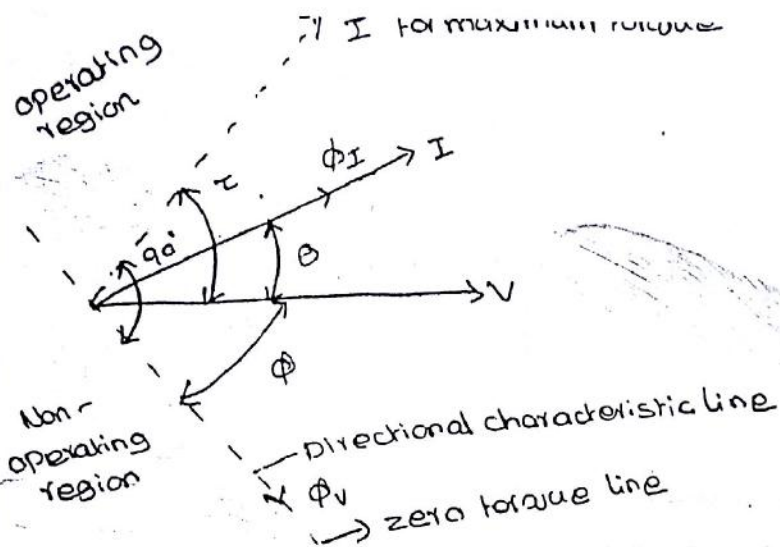 I for maximum torque
operating
region
ϕI I
τ
90°
θ
V
ϕ
Non-
operating
region
Directional characteristic line
ϕV
→ zero torque line